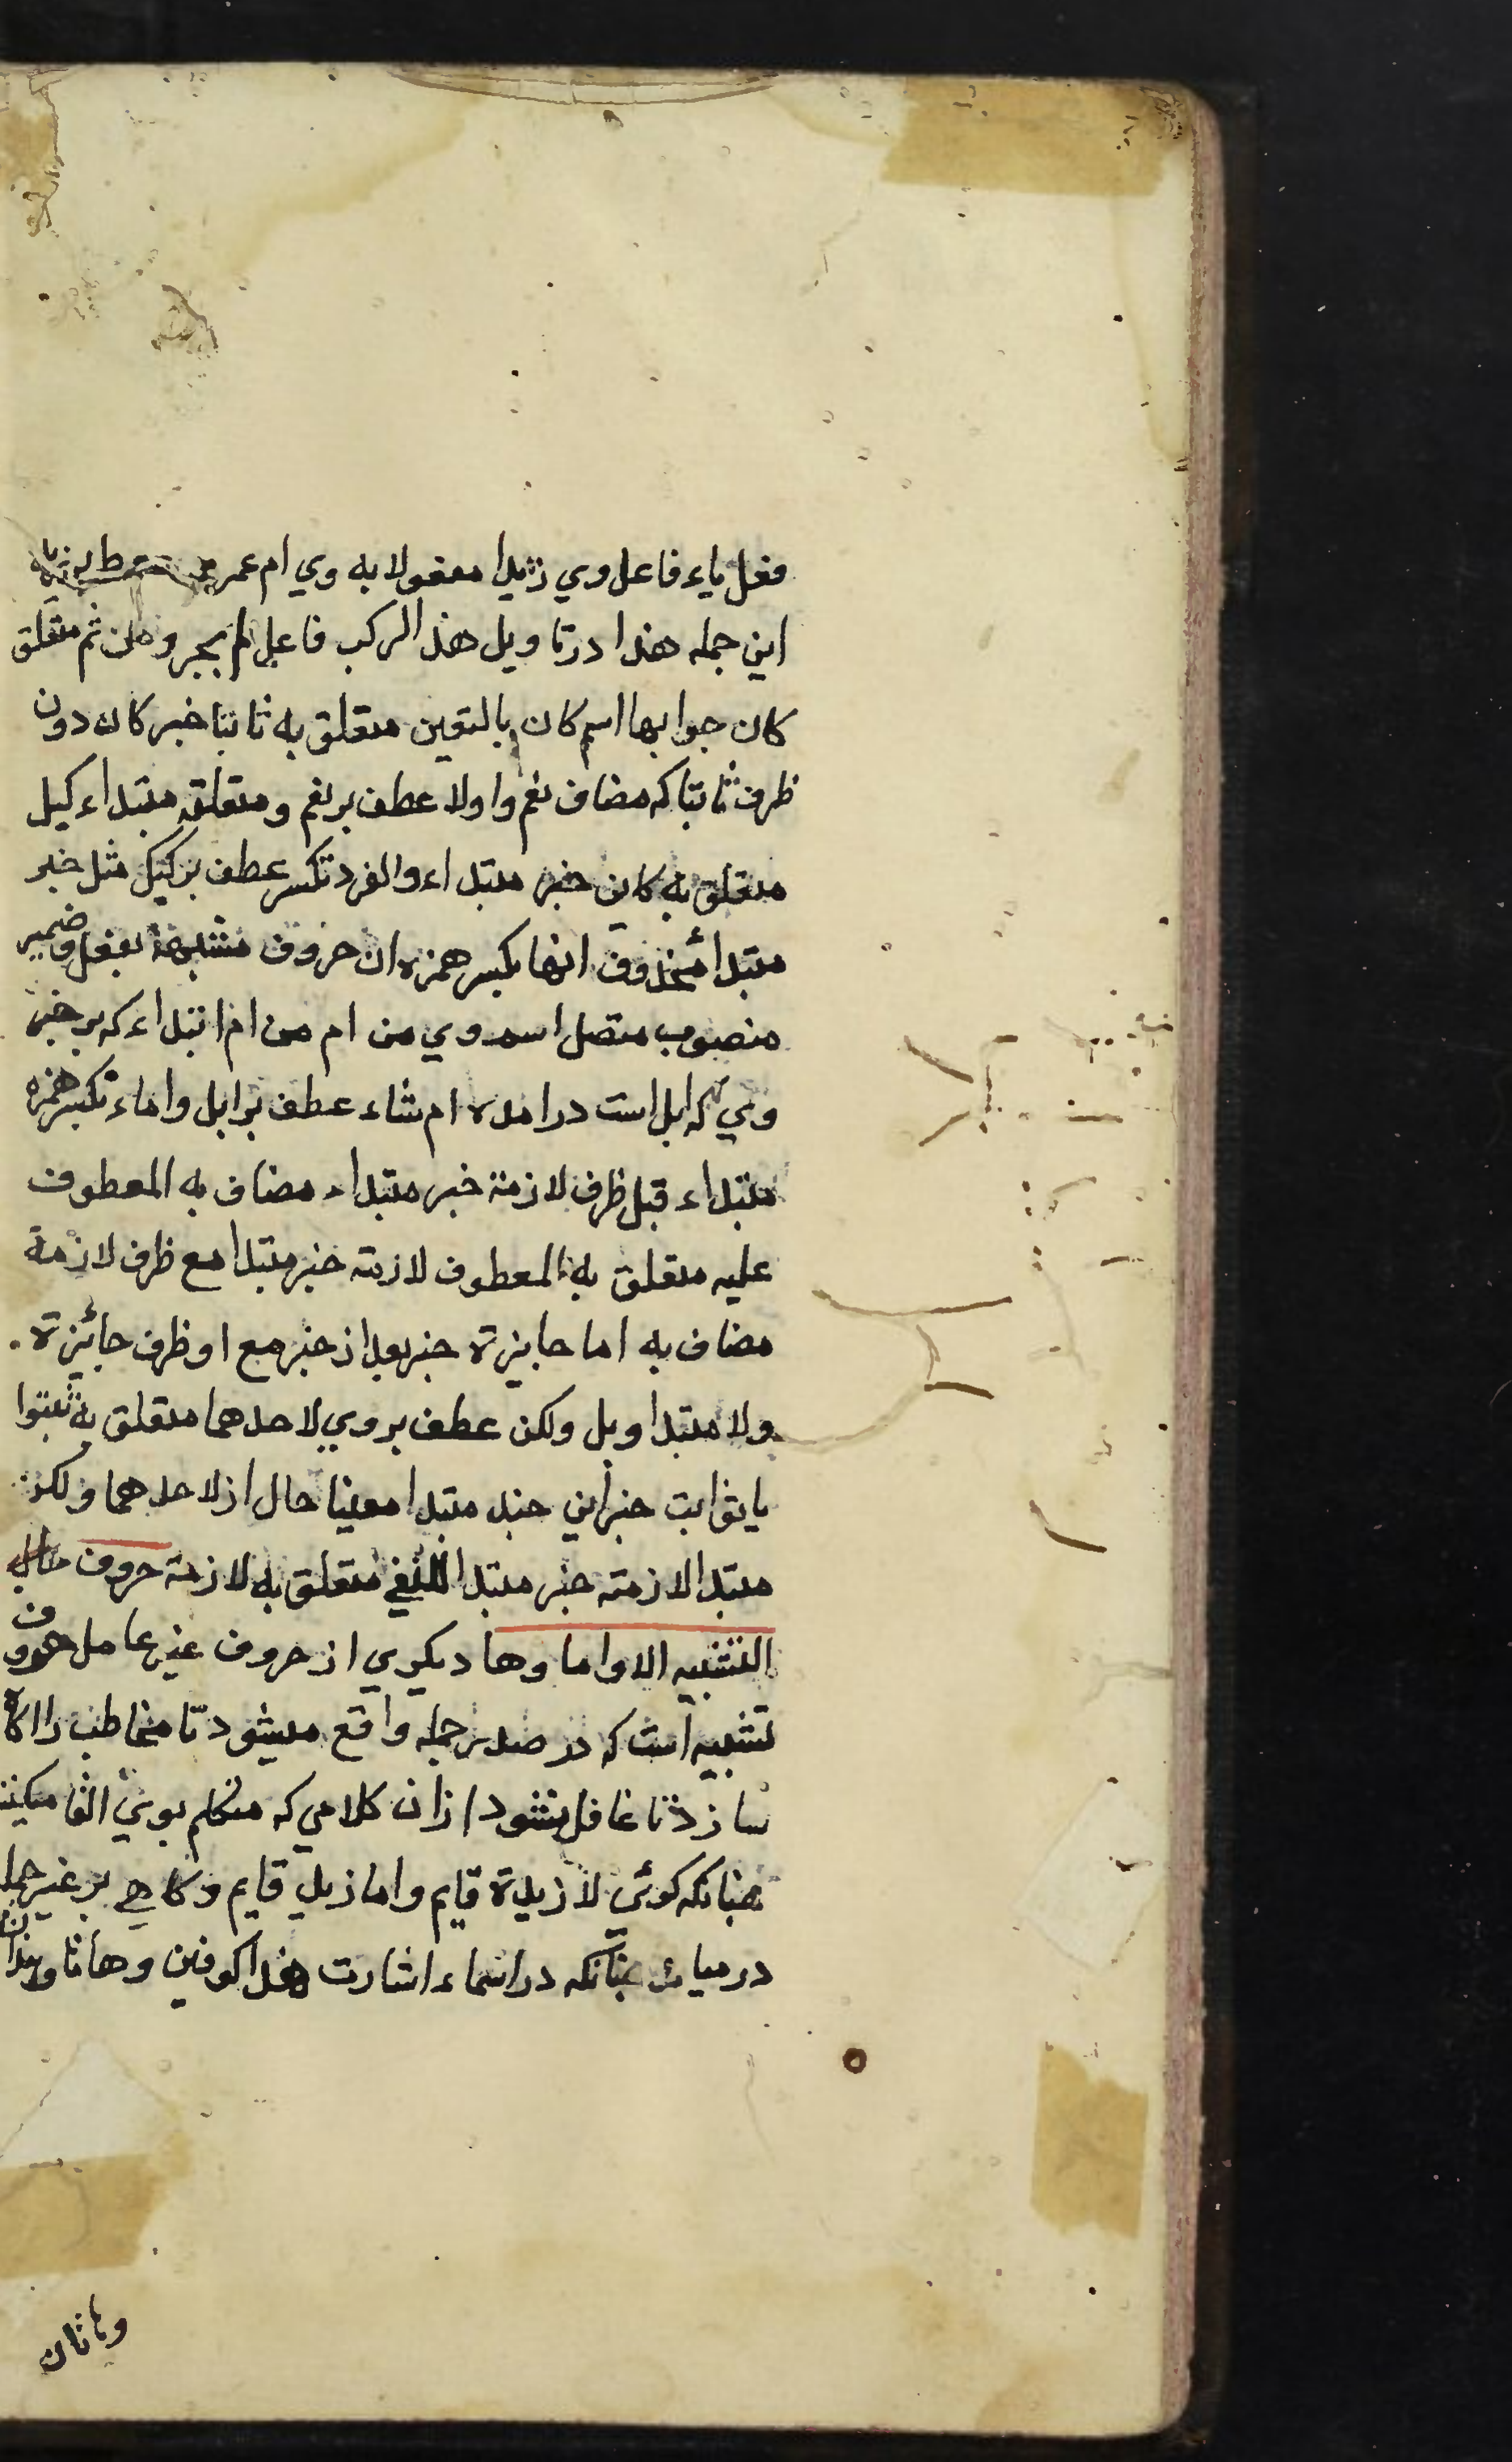 فعل یاء فاعل وي زیدا مفعولا به وي ام عمر
این جمله هذا درتا ویل هذ الرکب فاعل لم یجر ومن ثم متعلق
کان جوابها اسم کان بالتعین متعلق به ثابتا خبر کان دون
ظرف ثابتا که مضاف نعم واولا عطف بر نعم ومتعلقه مبتداء کیل
متعلق به کاین خبر مبتداء والفرد تکسر عطف بر کیل مثل خبر
مبتدا محذوف انها بکسر همزه ان حروف مشبهة بفعل وضمیر
منصوب متصل اسم وي من ام من ام ابتداء که بر خبر
وي که ابل است درامده ام شاء عطف بر ابل واماء بکسر همزه
مبتداء قبل ظرف لازمة خبر مبتداء مضاف به المعطوف
علیه متعلق به المعطوف لازمته خبر مبتدا مع ظرف لازمة
مضاف به اما جایزة خبر بعد از خبر مع او ظرف جائزة
ولا مبتدا وبل ولکن عطف بر وي لاحدهما متعلق به ثبتوا
یا ثوابت خبر این خبد مبتدا معینا حال از لاحدهما ولکن
مبتدا لازمته خبر مبتدا للنفي متعلق به لازمته حروف
التنبیه الا واما وها دیکري از حروف غیر عامل حروف
تنبیه است که در صدر جمله واقع میشود تا مخاطب را اکاه
سازد تا غافل نشود از ان کلامي که متکلم بوي القا میکند
چنانکه کوئي لا زیدة قایم واما زید قایم وکاهي بر غیر جمله
در میاید چنانکه در اسماء اشارت هذا کوفین وهاتا وهذان
وهاتان